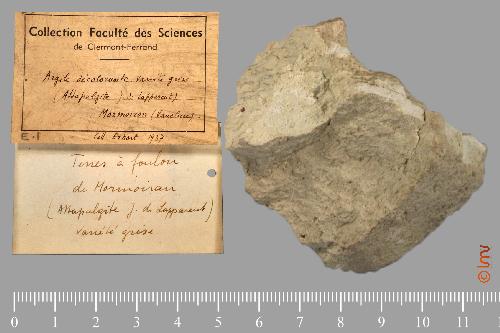 Collection Faculté des Sciences
de Clermont-Ferrand
Argile décolorante variété grise
(Attapulgite J. de Lapparent)
Mormoiron (Vaucluse)
E.1 Coll. Erhart 1937
Terres à foulon
de Mormoiron
(Attapulgite J. de Lapparent)
variété grise
© lmv
0 1 2 3 4 5 6 7 8 9 10 11